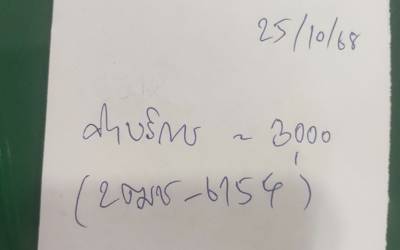 25/10/68
ค่าบริการ ~ 3,000
(2ฒช-6154)